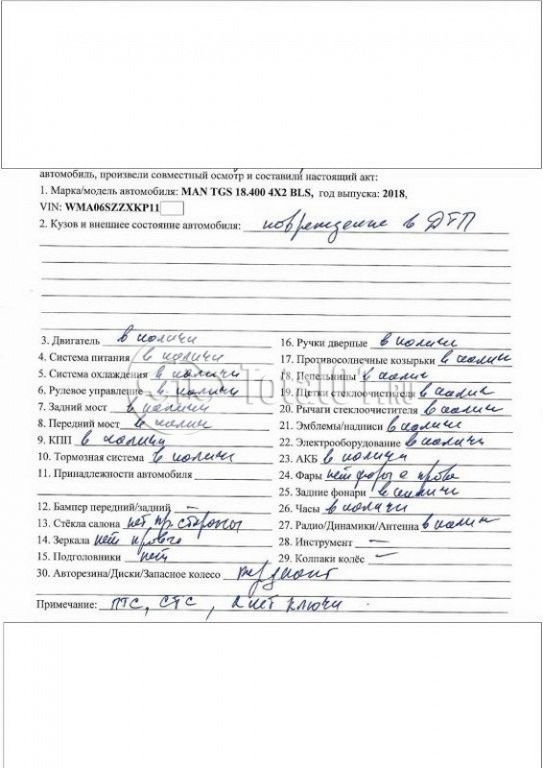 автомобиль, произвели совместный осмотр и составили настоящий акт:
1. Марка/модель автомобиля: MAN TGS 18.400 4X2 BLS, год выпуска: 2018,
VIN: WMA06SZZXKP11
2. Кузов и внешнее состояние автомобиля: повреждение в ДТП
3. Двигатель в наличи
4. Система питания в наличи
5. Система охлаждения в наличи
6. Рулевое управление в наличи
7. Задний мост в наличи
8. Передний мост в налич
9. КПП в наличи
10. Тормозная система в наличи
11. Принадлежности автомобиля
12. Бампер передний/задний –
13. Стёкла салона нет пр. стороны
14. Зеркала нет правого
15. Подголовники нет
16. Ручки дверные в наличи
17. Противосолнечные козырьки в налич
18. Пепельницы в налич
19. Щетки стеклоочистителя в налич
20. Рычаги стеклоочистителя в наличи
21. Эмблемы/надписи в наличи
22. Электрооборудование в наличи
23. АКБ в наличи
24. Фары нет фары с право
25. Задние фонари в наличи
26. Часы в наличи
27. Радио/Динамики/Антенна в налич
28. Инструмент –
29. Колпаки колёс –
30. Авторезина/Диски/Запасное колесо
Примечание: ПТС, СТС, 2 кт ключи